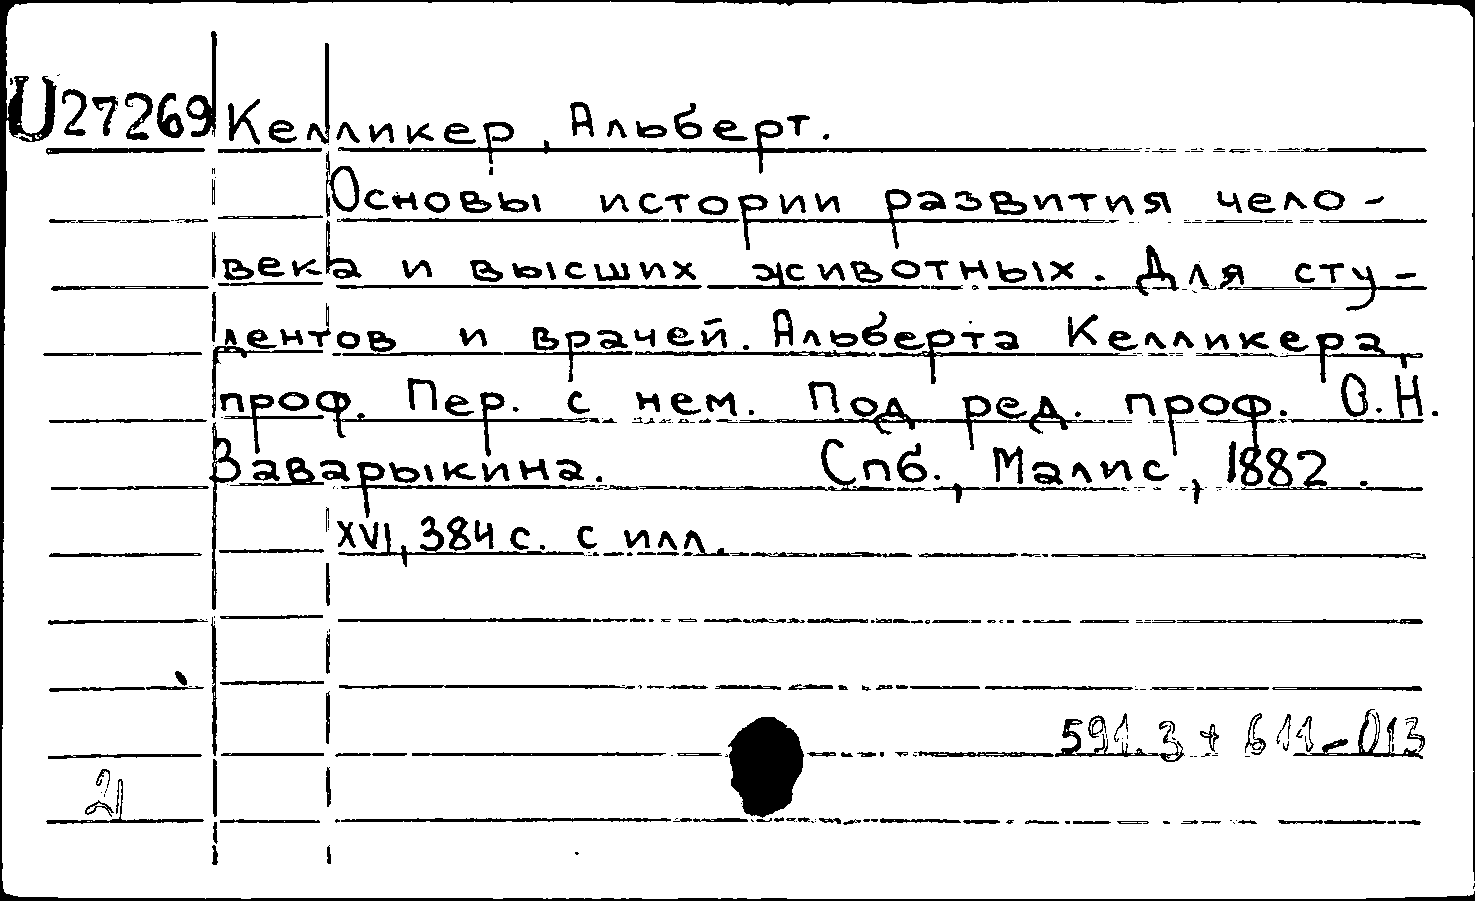 U27269 Келликер, Альберт.
Основы истории развития чело-
века и высших животных. Для сту-
дентов и врачей. Альберта Келликера,
проф. Пер. с нем. Под ред. проф. О.Н.
Заварыкина. Спб., Малис, 1882.
XVI, 384 с. с илл.
591.3 + 611-013
21